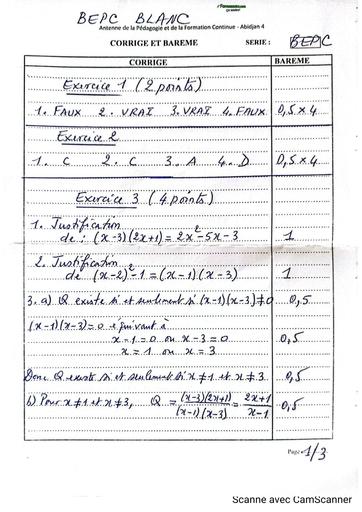 BEPC BLANC
Antenne de la Pédagogie et de la Formation Continue - Abidjan 4
CORRIGE ET BAREME SERIE : BEPC
CORRIGE BAREME
Exercice 1 (2 points)
1. FAUX 2. VRAI 3. VRAI 4. FAUX 0,5 x 4
Exercice 2
1. C 2. C 3. A 4. D 0,5 x 4
Exercice 3 (4 points)
1. Justification
de : (x-3)(2x+1) = 2x²-5x-3 1
2. Justification
de (x-2)²-1 = (x-1)(x-3) 1
3. a) Q existe si et seulement si (x-1)(x-3) ≠ 0 0,5
(x-1)(x-3) = 0 équivaut à
x-1 = 0 ou x-3 = 0 0,5
x = 1 ou x = 3
Donc Q existe si et seulement si x ≠ 1 et x ≠ 3 0,5
b) Pour x ≠ 1 et x ≠ 3, Q = (x-3)(2x+1)/(x-1)(x-3) = 2x+1/x-1 0,5
Page 1/3
Scanne avec CamScanner